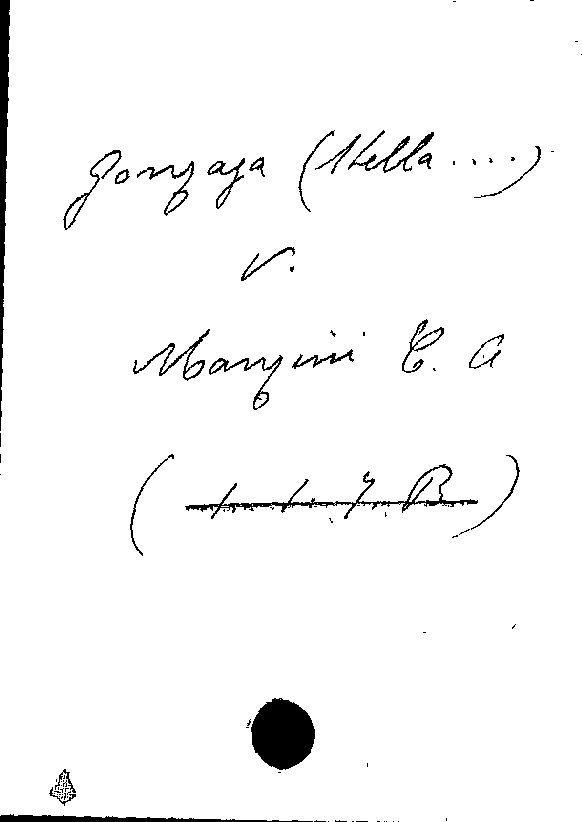 Gonzaga (Stella ....)
v.
Manzini C. A
( 1. 1. 7. B )